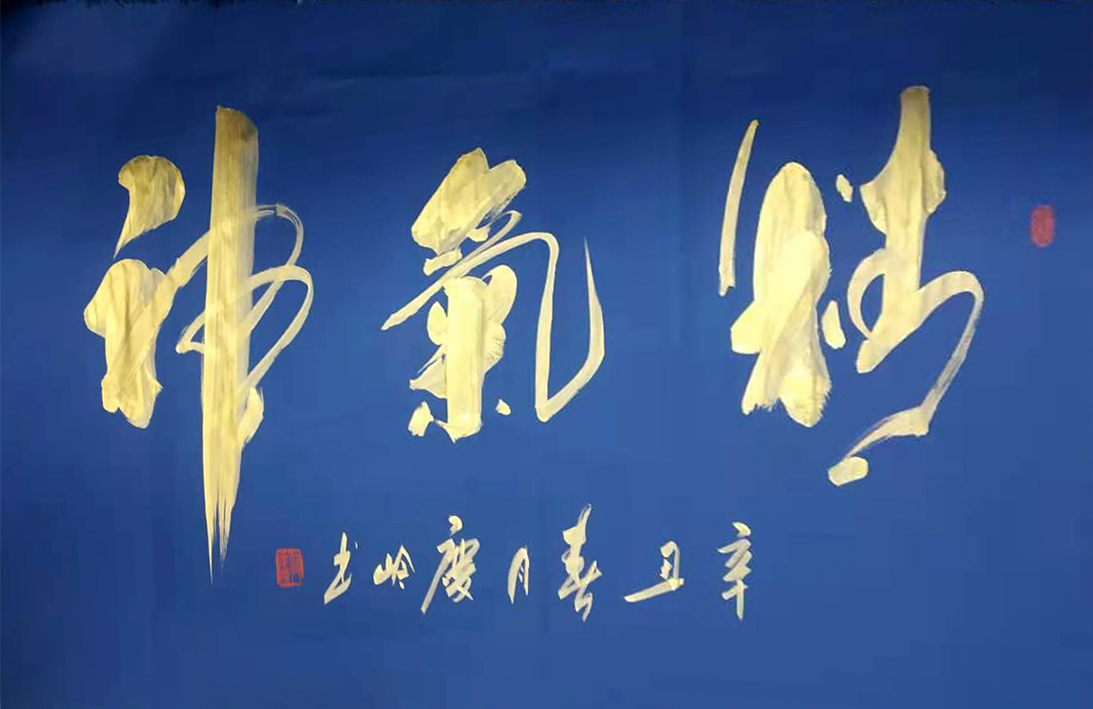 精氣神
辛丑春月慶岭书